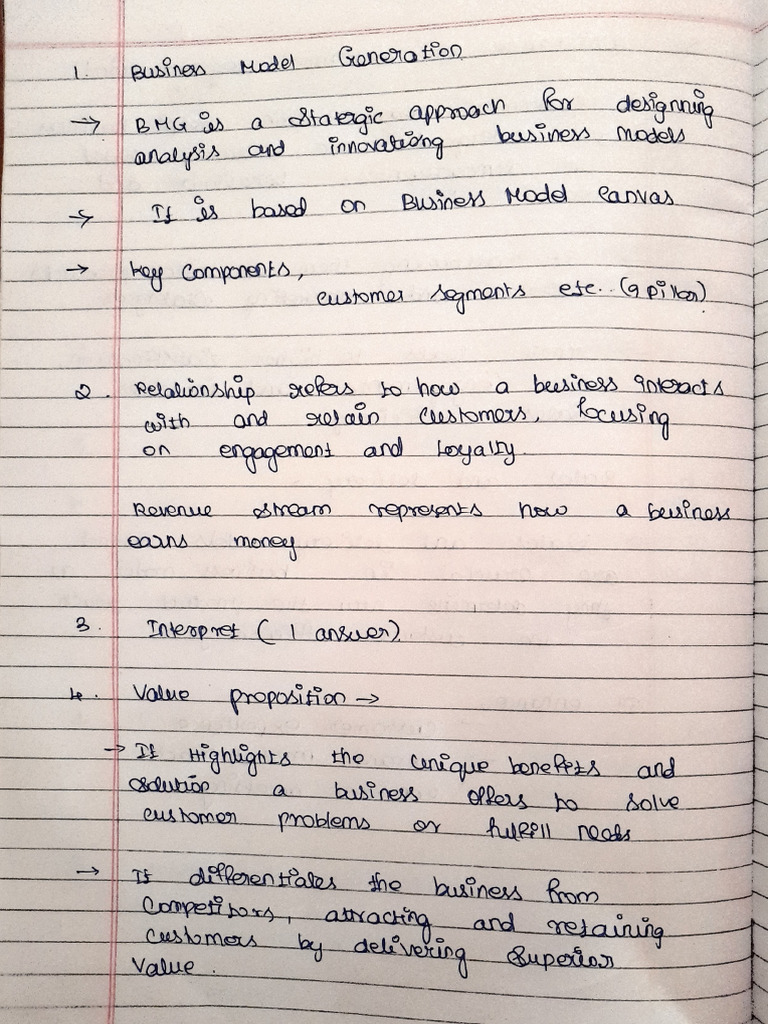 1. Business Model Generation
→ BMG is a Statergic approach for designning
analysis and innovationg business models
→ It is based on Business Model Canvas
→ Key Components,
customer segments etc.. (9 pillar)
2. Relationship refers to how a business interacts
with and retain customers, focusing
on engagement and Loyalty.
Revenue stream represents how a business
earns money
3. Interpret ( 1 answer)
4. Value proposition →
→ It Highlights the unique benefits and
solution a business offers to solve
customer problems or fulfill needs
→ It differentiates the business from
Competitors, attracting and retaining
customers by delivering Superior
Value.